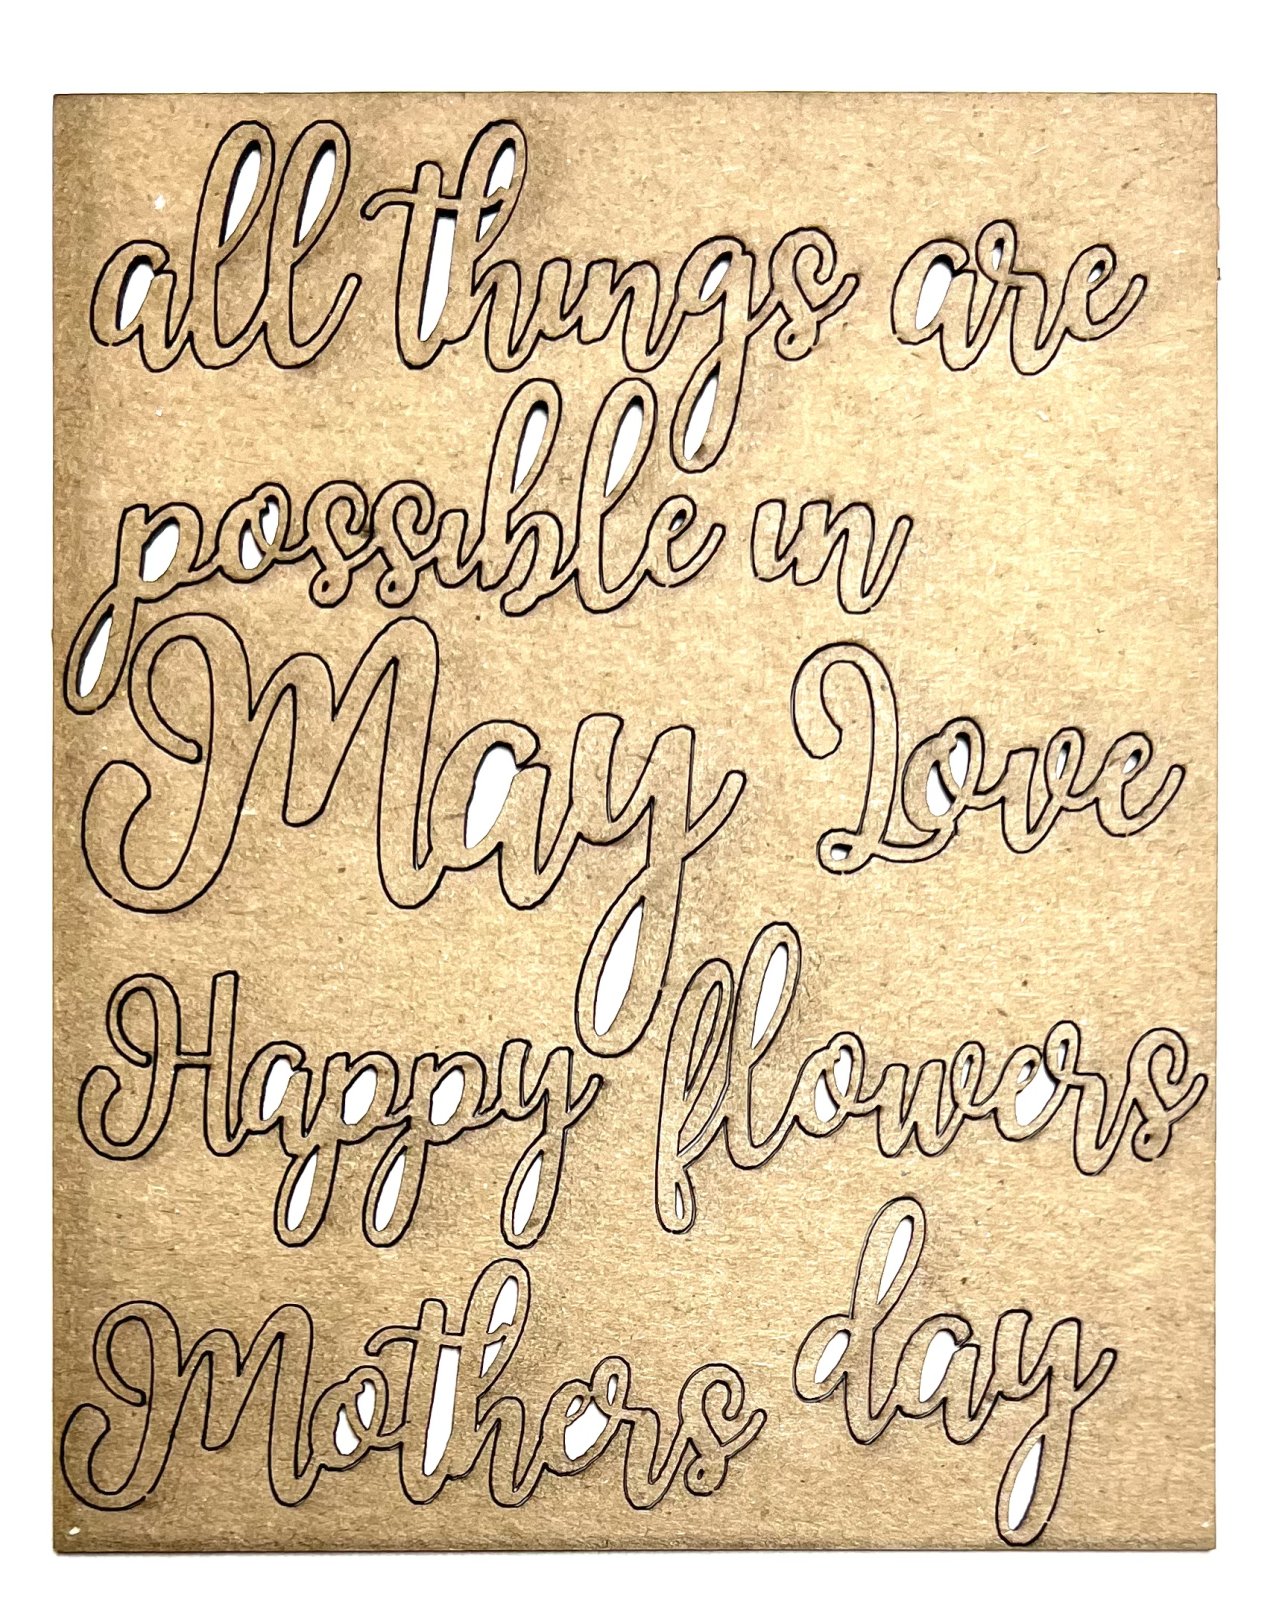 all things are
possible in
May Love
Happy flowers
Mothers day